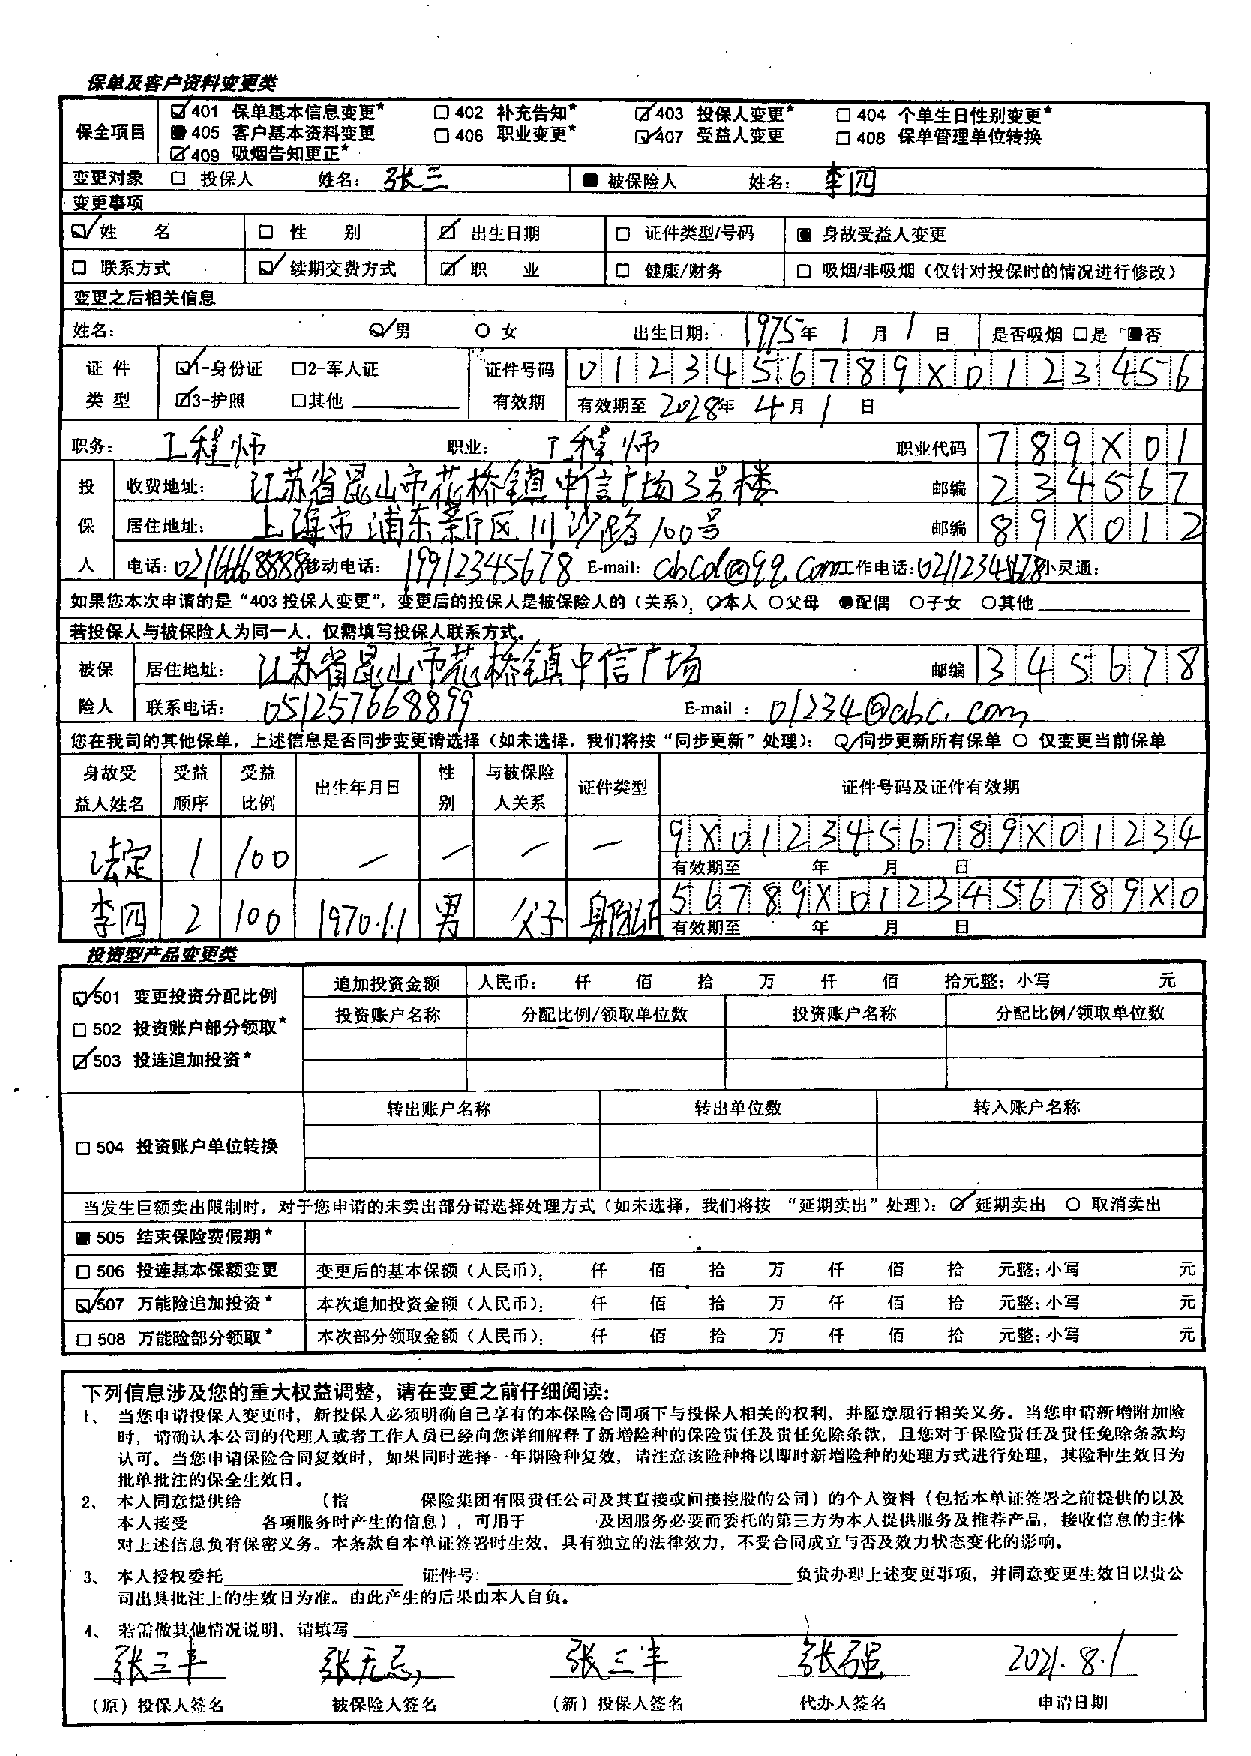 保单及客户资料变更类
保全项目 ☑401 保单基本信息变更* □402 补充告知* ☑403 投保人变更* □404 个单生日性别变更*
■405 客户基本资料变更 □406 职业变更* ☑407 受益人变更 □408 保单管理单位转换
☑409 吸烟告知更正*
变更对象 □ 投保人 姓名: 张三 ■ 被保险人 姓名: 李四
变更事项
☑姓 名 □ 性 别 ☑ 出生日期 □ 证件类型/号码 ■ 身故受益人变更
□ 联系方式 ☑ 续期交费方式 ☑ 职 业 □ 健康/财务 □ 吸烟/非吸烟(仅针对投保时的情况进行修改)
变更之后相关信息
姓名: ☑男 ○ 女 出生日期: 1975年 1 月 1 日 是否吸烟 □是 ■否
证 件 ☑1-身份证 □2-军人证 证件号码 0123456789X0123456
类 型 ☑3-护照 □其他 有效期 有效期至 2028年 4月 1 日
职务: 工程师 职业: 工程师 职业代码 789X01
投 收费地址: 江苏省昆山市花桥镇中信广场3号楼 邮编 234567
保 居住地址: 上海市浦东新区川沙路100号 邮编 89X012
人 电话: 02166688888 移动电话: 19912345678 E-mail: abcd@qq.com 工作电话: 02112345678 小灵通:
如果您本次申请的是“403 投保人变更”, 变更后的投保人是被保险人的(关系): ☑本人 ○父母 ●配偶 ○子女 ○其他
若投保人与被保险人为同一人, 仅需填写投保人联系方式。
被保 居住地址: 江苏省昆山市花桥镇中信广场 邮编 345678
险人 联系电话: 051257668899 E-mail : 01234@abc.com
您在我司的其他保单, 上述信息是否同步变更请选择(如未选择, 我们将按“同步更新”处理): ☑同步更新所有保单 ○ 仅变更当前保单
身故受益人姓名 受益顺序 受益比例 出生年月日 性别 与被保险人关系 证件类型 证件号码及证件有效期
法定 1 100 — — — — 9X0123456789X01234
有效期至 年 月 日
李四 2 100 1970.1.1 男 父子 身份证 56789X0123456789X0
有效期至 年 月 日
投资型产品变更类
☑501 变更投资分配比例 追加投资金额 人民币: 仟 佰 拾 万 仟 佰 拾元整; 小写 元
□502 投资账户部分领取* 投资账户名称 分配比例/领取单位数 投资账户名称 分配比例/领取单位数
☑503 投连追加投资*
转出账户名称 转出单位数 转入账户名称
□504 投资账户单位转换
当发生巨额卖出限制时, 对于您申请的未卖出部分请选择处理方式(如未选择, 我们将按 “延期卖出”处理): ☑延期卖出 ○ 取消卖出
■505 结束保险费假期*
□506 投连基本保额变更 变更后的基本保额(人民币): 仟 佰 拾 万 仟 佰 拾 元整; 小写 元
☑507 万能险追加投资* 本次追加投资金额(人民币): 仟 佰 拾 万 仟 佰 拾 元整; 小写 元
□508 万能险部分领取* 本次部分领取金额(人民币): 仟 佰 拾 万 仟 佰 拾 元整; 小写 元
下列信息涉及您的重大权益调整, 请在变更之前仔细阅读:
1、 当您申请投保人变更时, 新投保人必须明确自己享有的本保险合同项下与投保人相关的权利, 并愿意履行相关义务。当您申请新增附加险
时, 请确认本公司的代理人或者工作人员已经向您详细解释了新增险种的保险责任及责任免除条款, 且您对于保险责任及责任免除条款均
认可。当您申请保险合同复效时, 如果同时选择一年期险种复效, 请注意该险种将以即时新增险种的处理方式进行处理, 其险种生效日为
批单批注的保全生效日。
2、 本人同意提供给 (指 保险集团有限责任公司及其直接或间接控股的公司)的个人资料(包括本单证签署之前提供的以及
本人接受 各项服务时产生的信息), 可用于 及因服务必要而委托的第三方为本人提供服务及推荐产品, 接收信息的主体
对上述信息负有保密义务。本条款自本单证签署时生效, 具有独立的法律效力, 不受合同成立与否及效力状态变化的影响。
3、 本人授权委托 证件号: 负责办理上述变更事项, 并同意变更生效日以贵公
司出具批注上的生效日为准。由此产生的后果由本人自负。
4、 若需做其他情况说明, 请填写
张三丰 张无忌 张三丰 张强 2021.8.1
(原)投保人签名 被保险人签名 (新)投保人签名 代办人签名 申请日期